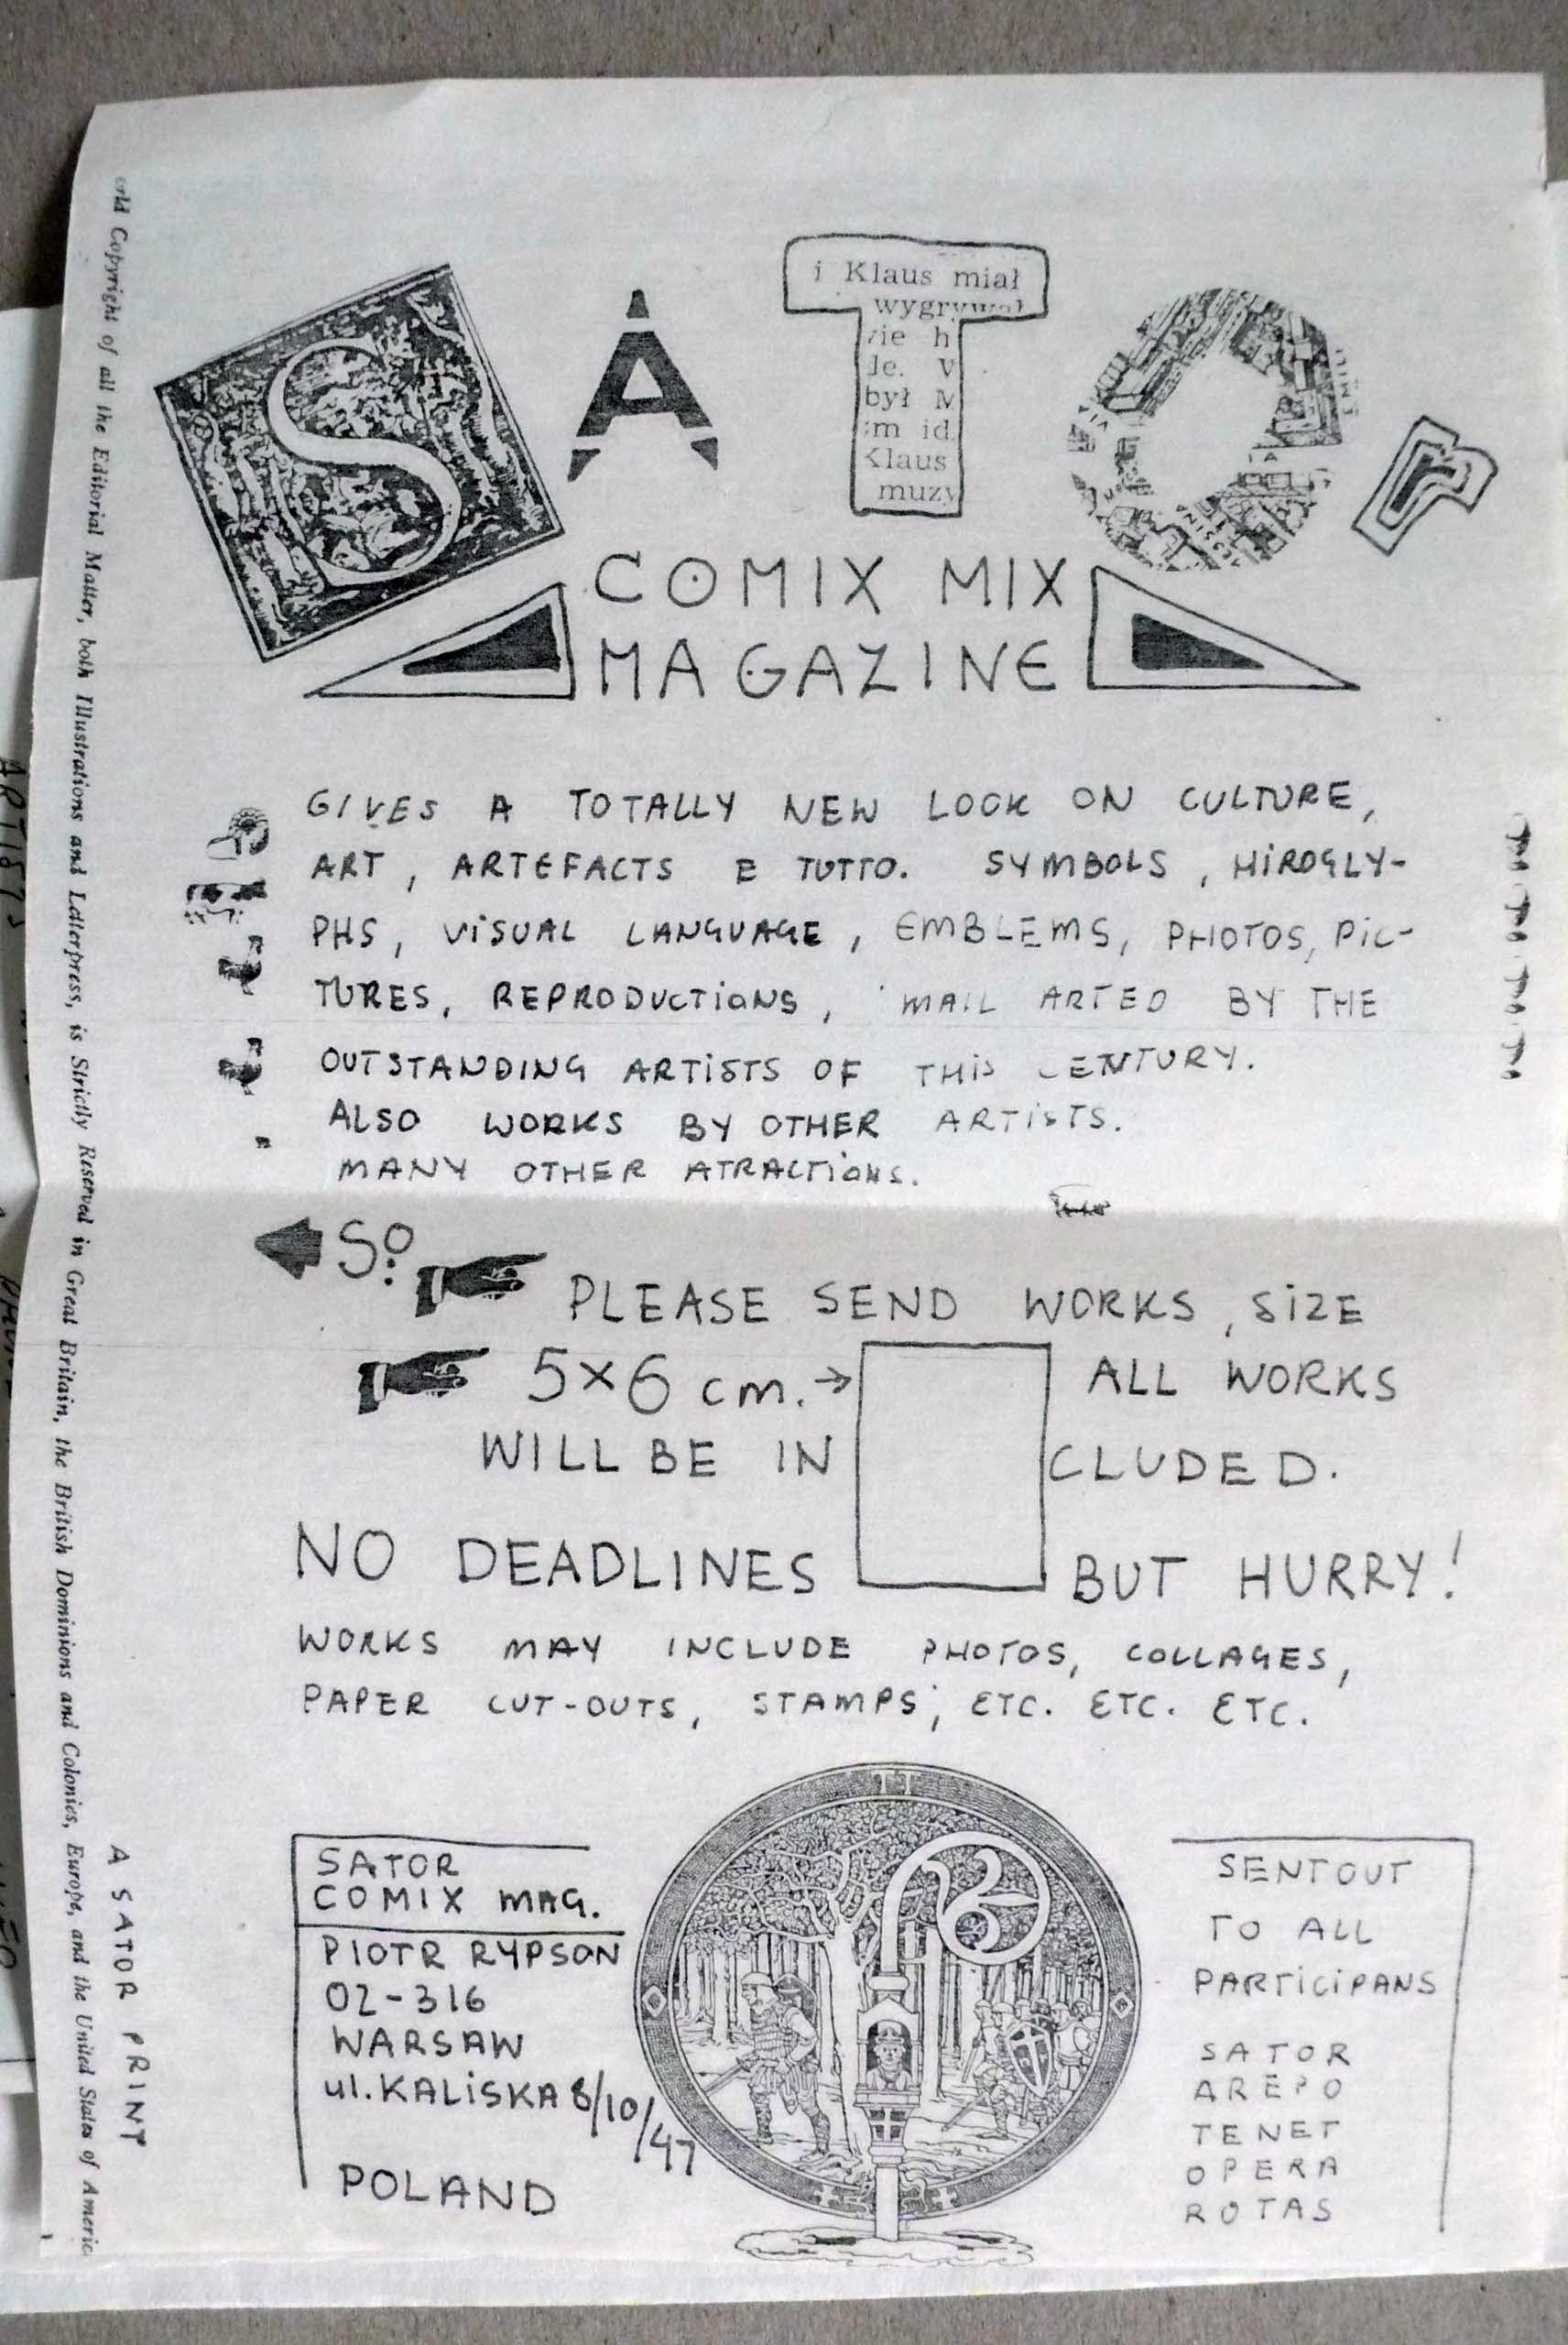 SATOR
i Klaus miał
wygrywał
zie h
le. W
był M
m id
Klaus
muzy
COMIX MIX
MAGAZINE
GIVES A TOTALLY NEW LOOK ON CULTURE,
ART, ARTEFACTS E TUTTO. SYMBOLS, HIROGLY-
PHS, VISUAL LANGUAGE, EMBLEMS, PHOTOS, PIC-
TURES, REPRODUCTIONS, MAIL ARTED BY THE
OUTSTANDING ARTISTS OF THIS CENTURY.
ALSO WORKS BY OTHER ARTISTS.
MANY OTHER ATRACTIONS.
SO:
PLEASE SEND WORKS, SIZE
5×6 cm. → ALL WORKS
WILL BE IN CLUDED.
NO DEADLINES BUT HURRY!
WORKS MAY INCLUDE PHOTOS, COLLAGES,
PAPER CUT-OUTS, STAMPS, ETC. ETC. ETC.
SATOR
COMIX MAG.
PIOTR RYPSON
02-316
WARSAW
ul. KALISKA 8/10/47
POLAND
SENT OUT
TO ALL
PARTICIPANS
SATOR
AREPO
TENET
OPERA
ROTAS
Copyright of all the Editorial Matter, both Illustrations and Letterpress, is Strictly Reserved in Great Britain, the British Dominions and Colonies, Europe, and the United States of Americ
A SATOR PRINT